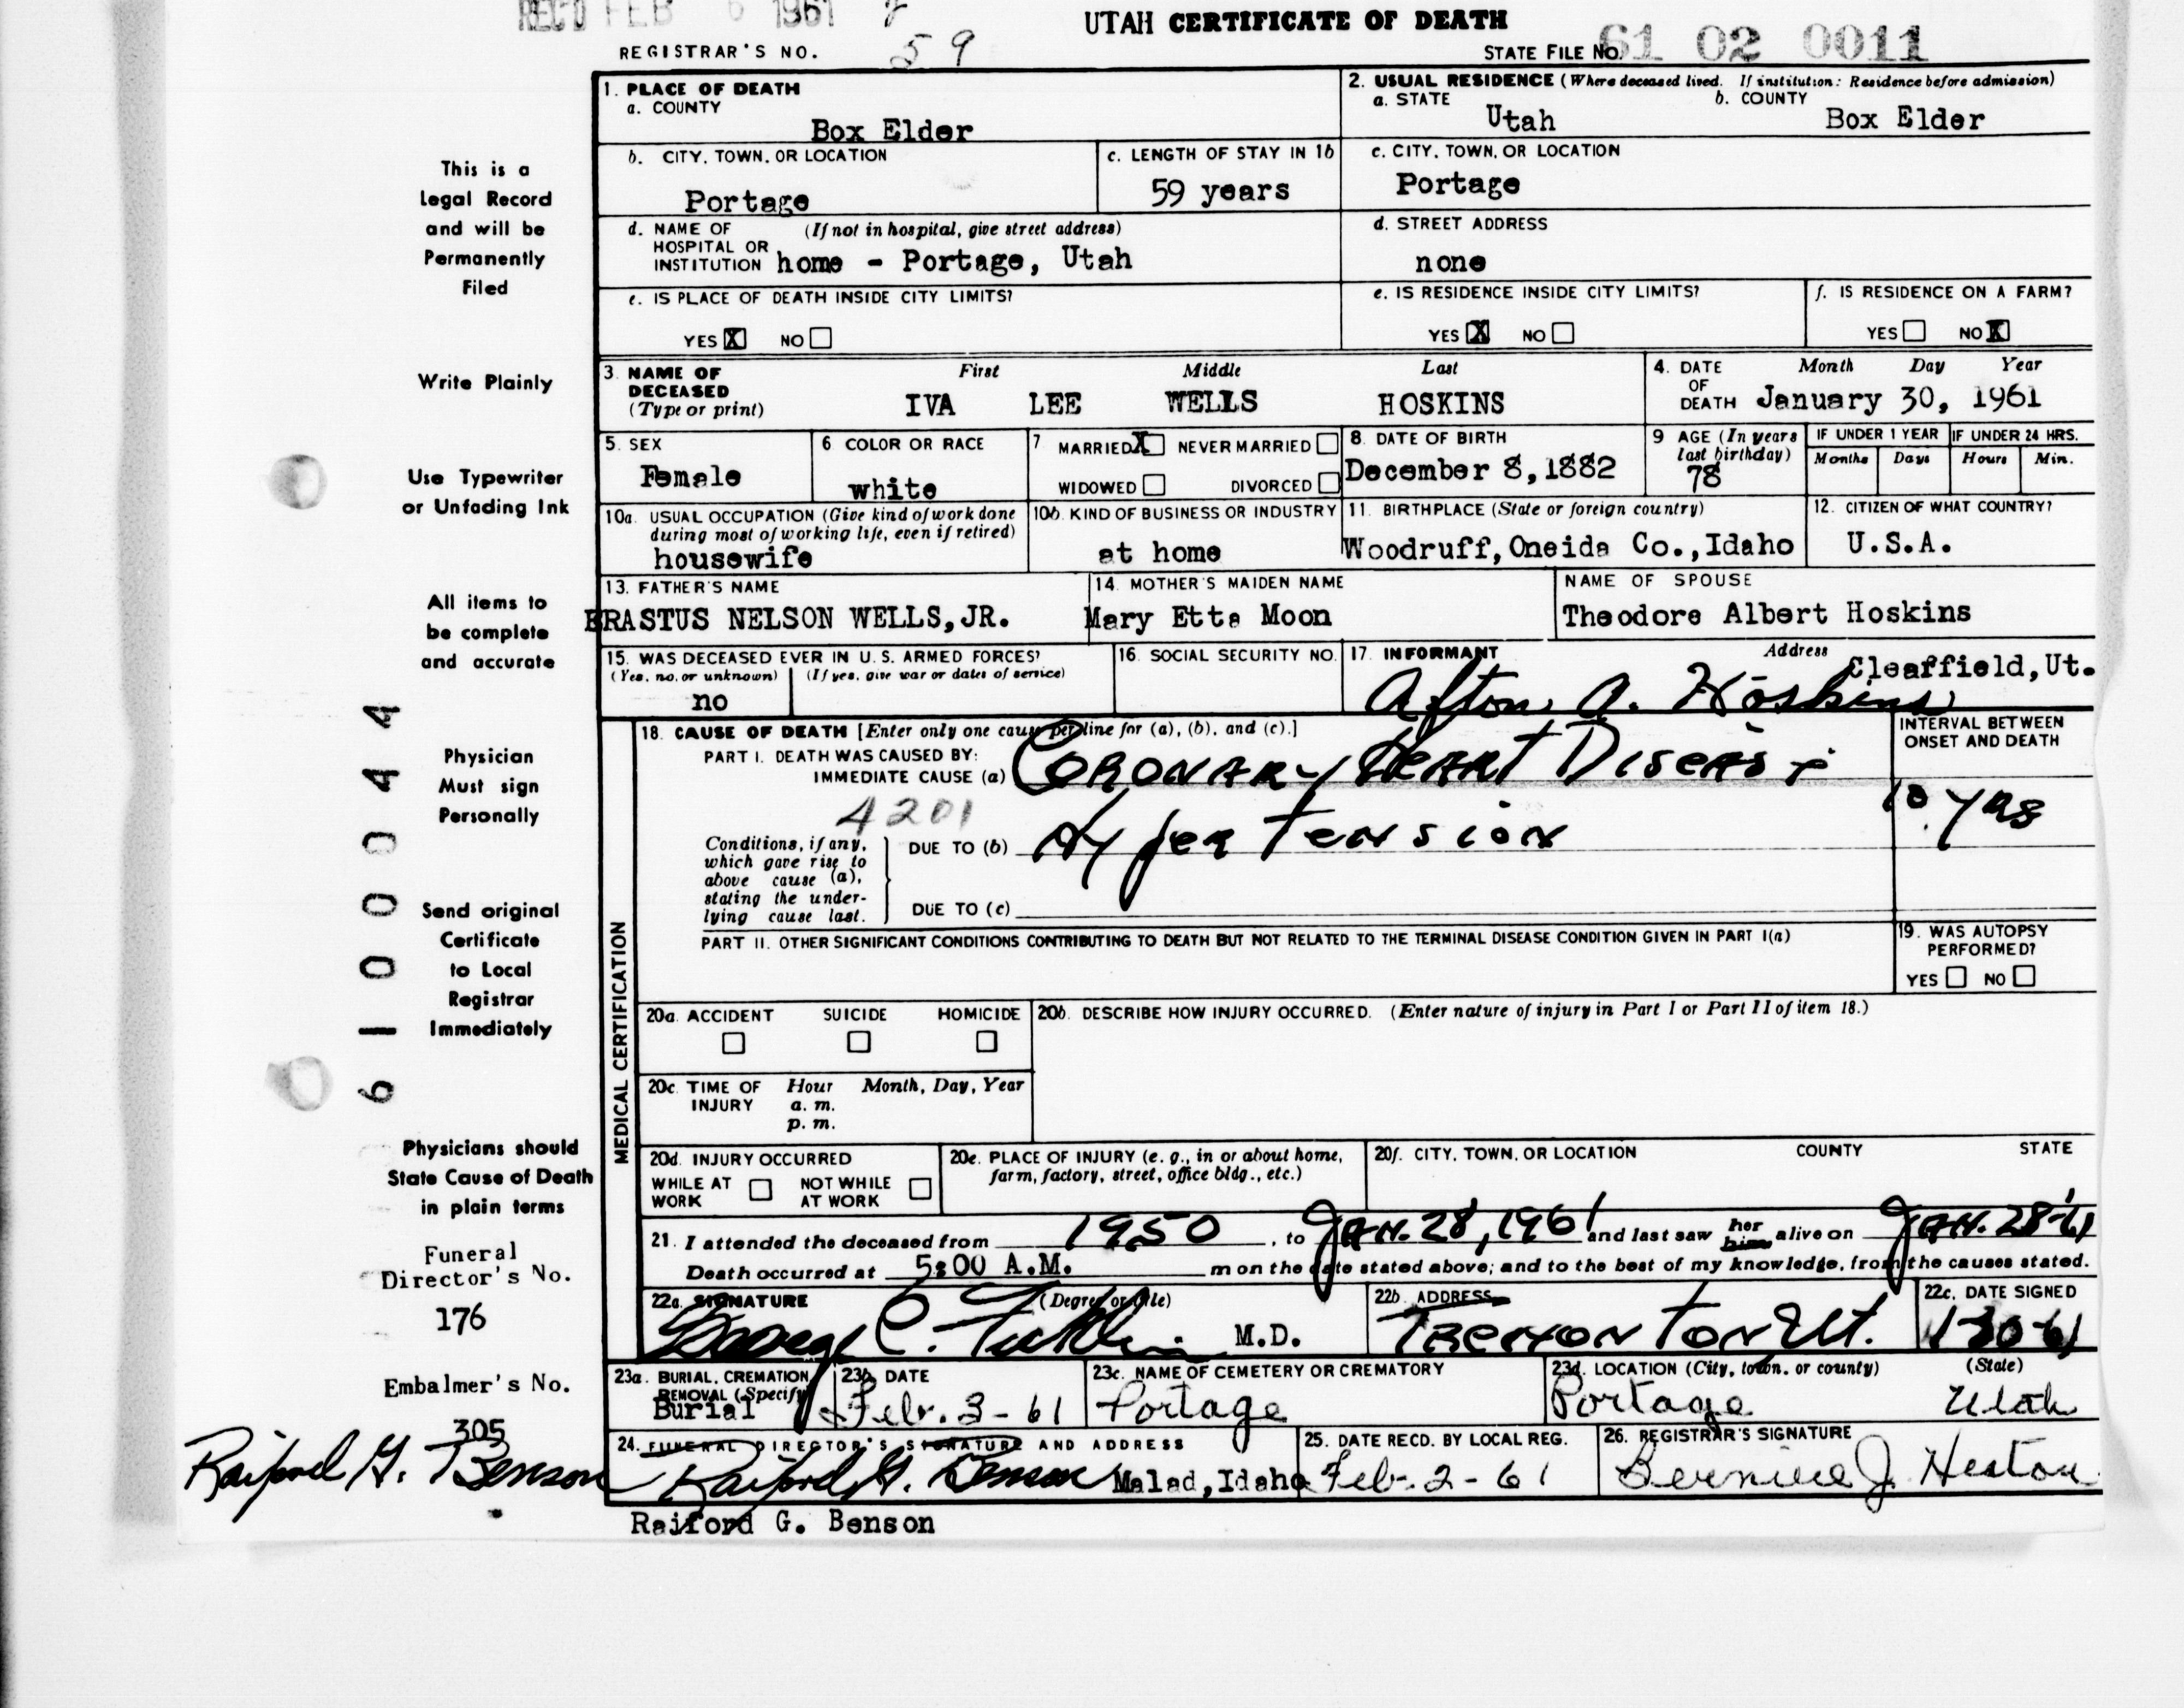 REC'D FEB 6 1961
UTAH CERTIFICATE OF DEATH
REGISTRAR'S NO. 59
STATE FILE No. 61 02 0011
1. PLACE OF DEATH
a. COUNTY
Box Elder
2. USUAL RESIDENCE (Where deceased lived. If institution: Residence before admission)
a. STATE b. COUNTY
Utah Box Elder
b. CITY, TOWN, OR LOCATION
Portage
c. LENGTH OF STAY IN 1b
59 years
c. CITY, TOWN, OR LOCATION
Portage
d. NAME OF (If not in hospital, give street address)
HOSPITAL OR
INSTITUTION home - Portage, Utah
d. STREET ADDRESS
none
e. IS PLACE OF DEATH INSIDE CITY LIMITS?
YES X NO
e. IS RESIDENCE INSIDE CITY LIMITS?
YES X NO
f. IS RESIDENCE ON A FARM?
YES NO X
3. NAME OF DECEASED
(Type or print)
First Middle Last
IVA LEE WELLS HOSKINS
4. DATE OF DEATH
Month Day Year
January 30, 1961
5. SEX
Female
6 COLOR OR RACE
white
7 MARRIED X NEVER MARRIED
WIDOWED DIVORCED
8. DATE OF BIRTH
December 8,1882
9 AGE (In years last birthday)
78
IF UNDER 1 YEAR IF UNDER 24 HRS.
Months Days Hours Min.
10a. USUAL OCCUPATION (Give kind of work done
during most of working life, even if retired)
housewife
10b. KIND OF BUSINESS OR INDUSTRY
at home
11. BIRTHPLACE (State or foreign country)
Woodruff,Oneida Co.,Idaho
12. CITIZEN OF WHAT COUNTRY?
U.S.A.
13. FATHER'S NAME
ERASTUS NELSON WELLS,JR.
14. MOTHER'S MAIDEN NAME
Mary Etta Moon
NAME OF SPOUSE
Theodore Albert Hoskins
15. WAS DECEASED EVER IN U.S. ARMED FORCES?
(Yes, no, or unknown) (If yes, give war or dates of service)
no
16. SOCIAL SECURITY NO.
17. INFORMANT Address
Afton A. Hoskins Clearfield,Ut.
MEDICAL CERTIFICATION
18. CAUSE OF DEATH [Enter only one cause per line for (a), (b), and (c).]
PART I. DEATH WAS CAUSED BY:
IMMEDIATE CAUSE (a) CORONARY HEART DISEASE
4201
Conditions, if any,
which gave rise to
above cause (a),
stating the under-
lying cause last.
DUE TO (b) Hypertension
DUE TO (c)
INTERVAL BETWEEN
ONSET AND DEATH
10 yrs
PART II. OTHER SIGNIFICANT CONDITIONS CONTRIBUTING TO DEATH BUT NOT RELATED TO THE TERMINAL DISEASE CONDITION GIVEN IN PART I(a)
19. WAS AUTOPSY
PERFORMED?
YES NO
20a. ACCIDENT SUICIDE HOMICIDE
20b. DESCRIBE HOW INJURY OCCURRED. (Enter nature of injury in Part I or Part II of item 18.)
20c. TIME OF INJURY
Hour Month, Day, Year
a. m.
p. m.
20d. INJURY OCCURRED
WHILE AT WORK NOT WHILE AT WORK
20e. PLACE OF INJURY (e. g., in or about home,
farm, factory, street, office bldg., etc.)
20f. CITY, TOWN, OR LOCATION COUNTY STATE
21. I attended the deceased from 1950, to JAN. 28, 1961 and last saw her him alive on JAN. 28-61
Death occurred at 5:00 A.M. m on the date stated above; and to the best of my knowledge, from the causes stated.
22a. SIGNATURE (Degree or title)
C. M.D.
22b. ADDRESS
Tremonton Ut.
22c. DATE SIGNED
1-30-61
23a. BURIAL, CREMATION,
REMOVAL (Specify)
Burial
23b. DATE
Feb. 3-61
23c. NAME OF CEMETERY OR CREMATORY
Portage
23d. LOCATION (City, town, or county) (State)
Portage Utah
24. FUNERAL DIRECTOR'S SIGNATURE AND ADDRESS
Raiford G. Benson Malad,Idaho
25. DATE RECD. BY LOCAL REG.
Feb-2-61
26. REGISTRAR'S SIGNATURE
Bernice J. Heston
Raiford G. Benson
This is a
Legal Record
and will be
Permanently
Filed
Write Plainly
Use Typewriter
or Unfading Ink
All items to
be complete
and accurate
Physician
Must sign
Personally
Send original
Certificate
to Local
Registrar
Immediately
Physicians should
State Cause of Death
in plain terms
Funeral
Director's No.
176
Embalmer's No.
305
Raiford G. Benson
6 1 0 0 0 4 4